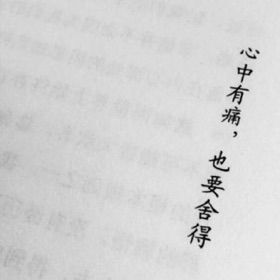 心中有痛，也要舍得